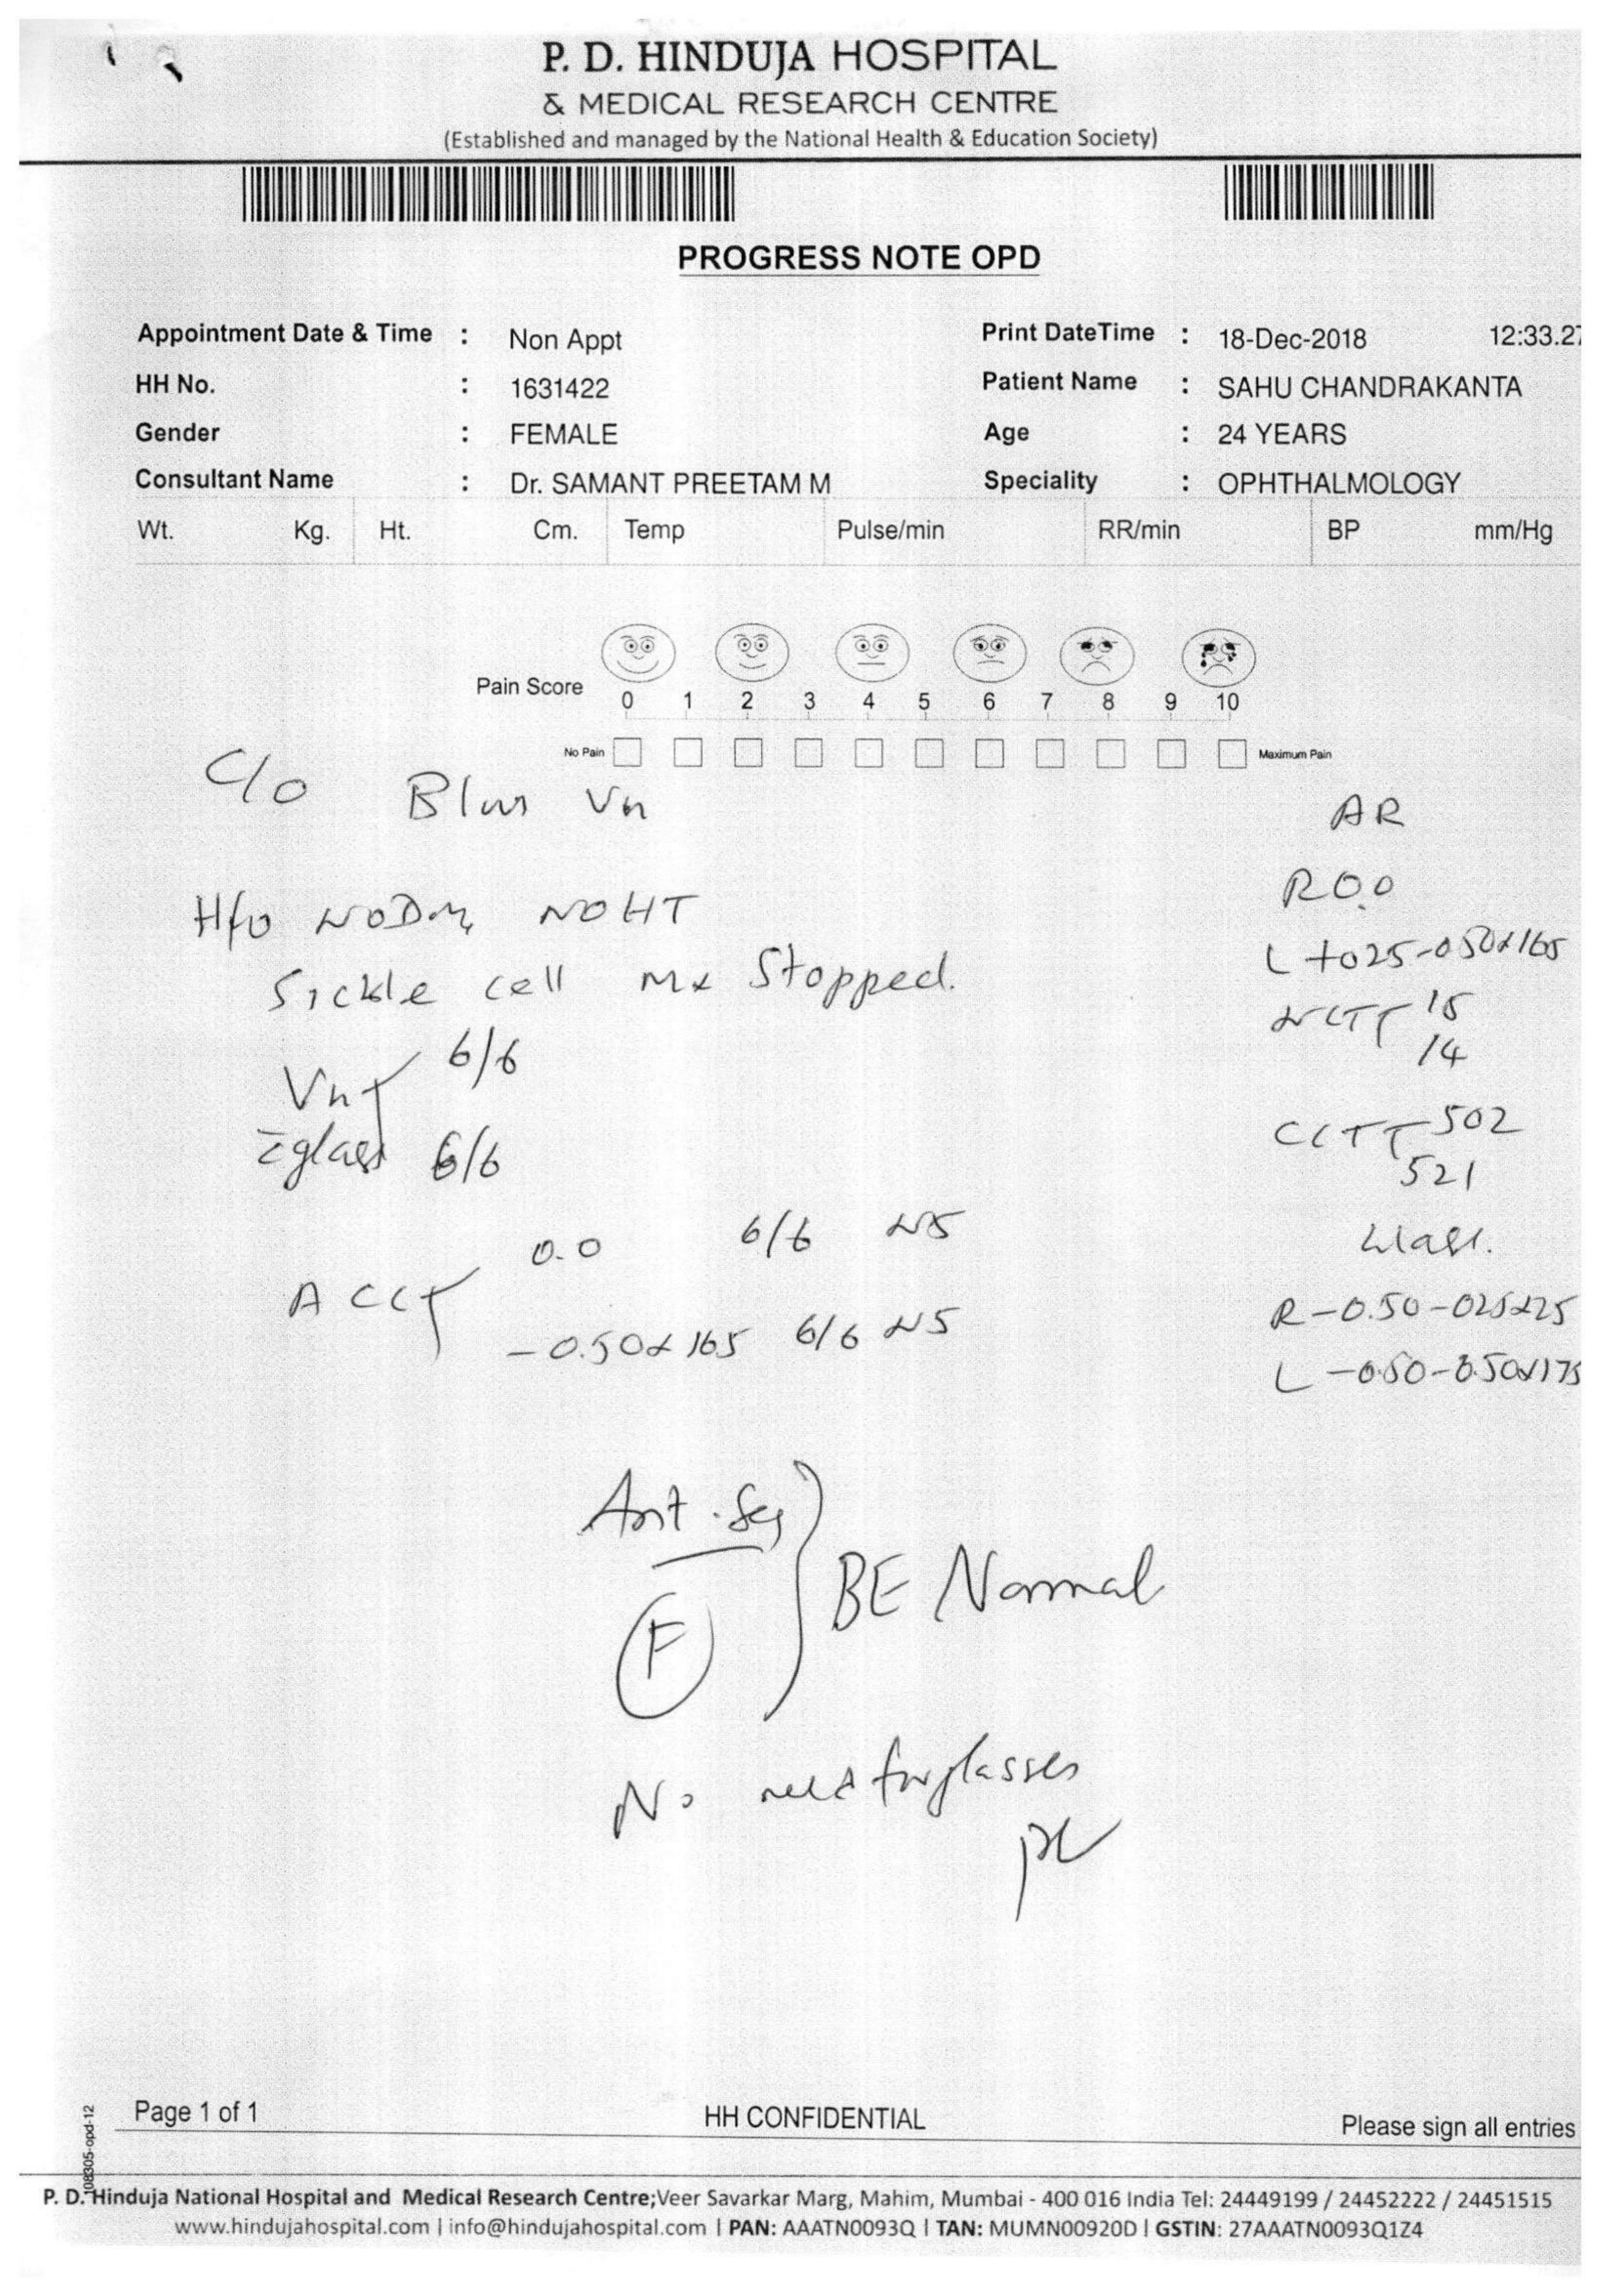 P. D. HINDUJA HOSPITAL
& MEDICAL RESEARCH CENTRE
(Established and managed by the National Health & Education Society)
PROGRESS NOTE OPD
Appointment Date & Time : Non Appt Print DateTime : 18-Dec-2018 12:33.27
HH No. : 1631422 Patient Name : SAHU CHANDRAKANTA
Gender : FEMALE Age : 24 YEARS
Consultant Name : Dr. SAMANT PREETAM M Speciality : OPHTHALMOLOGY
Wt. Kg. Ht. Cm. Temp Pulse/min RR/min BP mm/Hg
Pain Score 0 1 2 3 4 5 6 7 8 9 10
No Pain Maximum Pain
C/o Blur Vn
AR
R 0.0
H/o NO DM, NO HT
L +025-050x165
Sickle cell Mx Stopped.
NCT 15
14
Vn 6/6
c glass 6/6
CCT 502
521
0.0 6/6 N5
Glass.
ACC
-0.50x165 6/6 N5
R -0.50-025x25
L -0.50-0.50x175
Ant. Seg
F
BE Normal
No need for glasses
Page 1 of 1 HH CONFIDENTIAL Please sign all entries
108305-opd-12
P. D. Hinduja National Hospital and Medical Research Centre;Veer Savarkar Marg, Mahim, Mumbai - 400 016 India Tel: 24449199 / 24452222 / 24451515
www.hindujahospital.com | info@hindujahospital.com | PAN: AAATN0093Q | TAN: MUMN00920D | GSTIN: 27AAATN0093Q1Z4